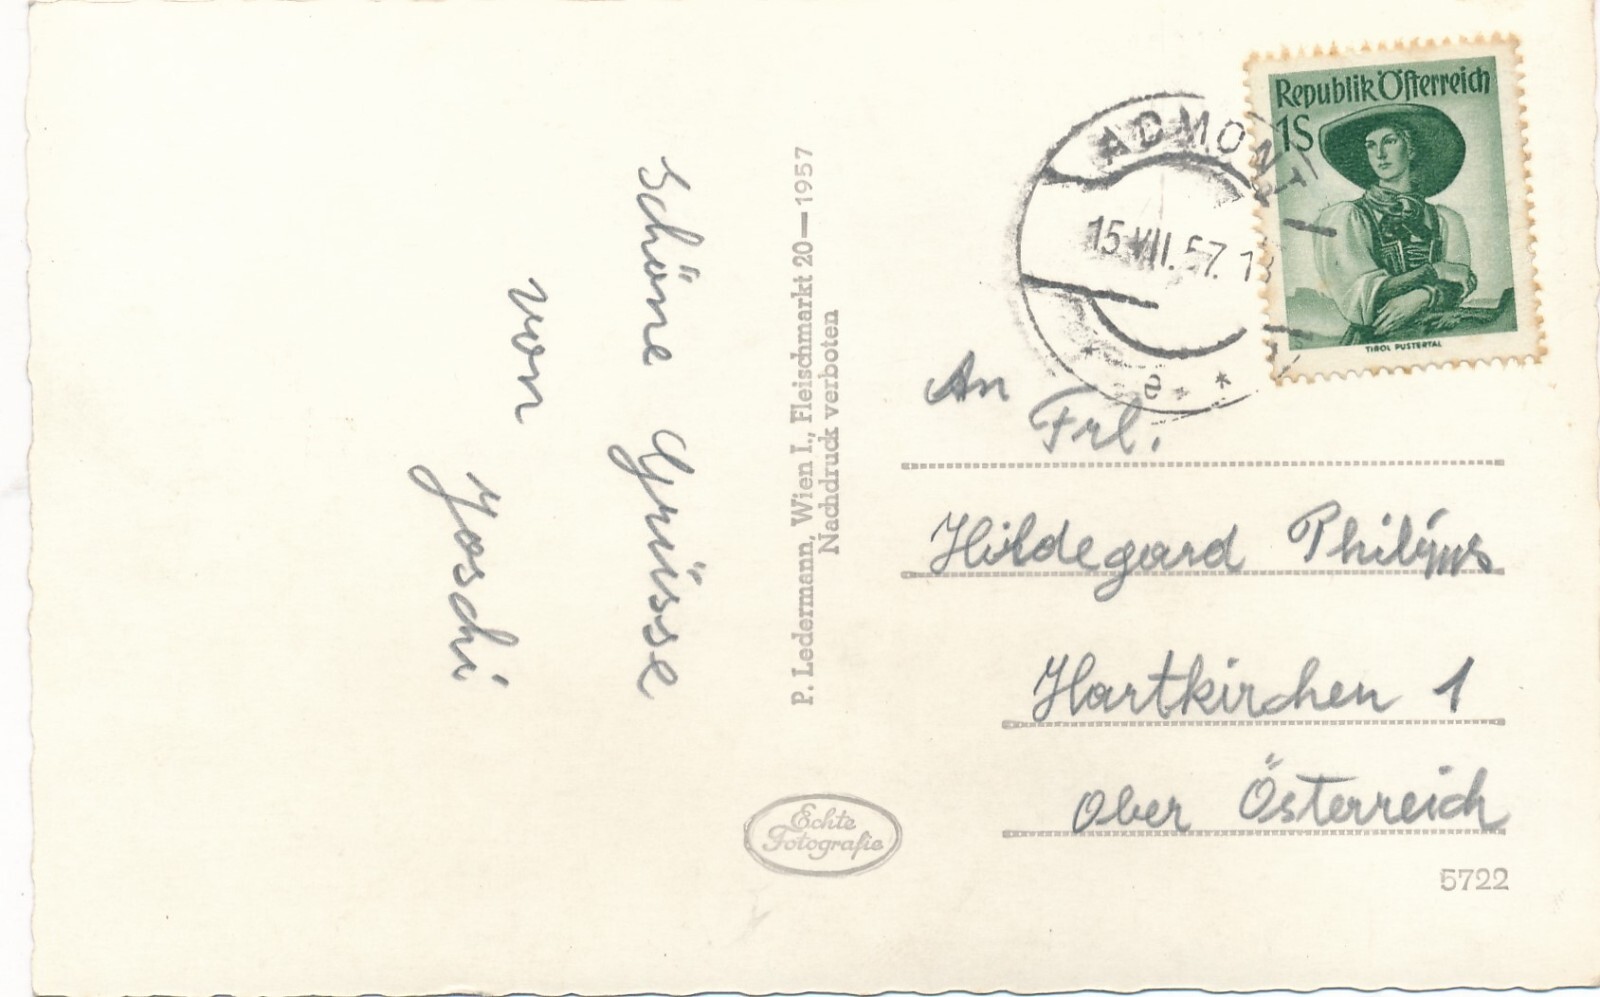 Schöne Grüsse
von
Joschi
P. Ledermann, Wien I., Fleischmarkt 20—1957
Nachdruck verboten
Echte
Fotografie
Republik Österreich
1S
TIROL PUSTERTAL
ADMONT
15.VII.57. 18
* e * *
An
Frl.
Hildegard Philipps
Hartkirchen 1
Ober Österreich
5722